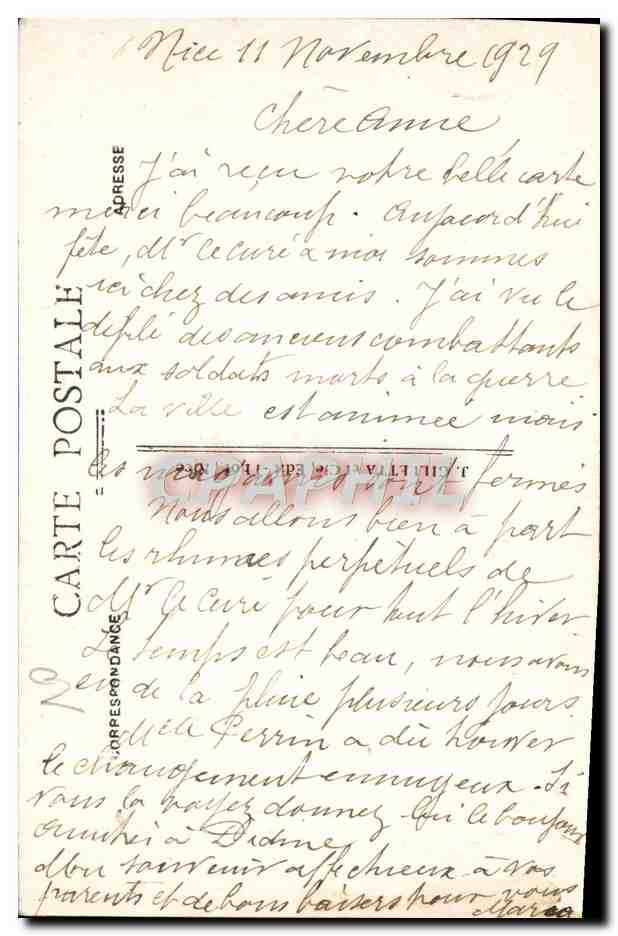 Nice 11 Novembre 1929
Chère Annie
J'ai reçu votre belle carte
merci beaucoup. Aujourd'hui
fête, Mr le curé a moi sommes
ici chez des amis. J'ai vu le
defilé des anciens combattants
aux soldats morts à la guerre
La ville est animée mais
les magasins sont fermés
Nous allons bien à part
les rhumes perpétuels de
Mr le Curé pour tout l'hiver
Le temps est beau, nous avons
eu de la pluie plusieurs jours
Melle Perrin a dû trouver
le changement ennuyeux. Si
vous la voyez donnez lui le bonjour
à Didine
Mon souvenir affectueux à vos
parents et de bons baisers pour vous
Maria
CARTE POSTALE
ADRESSE
CORRESPONDANCE
J. GILLETTA et Cie, Edit.-Phot. Nice
CPAPHIL